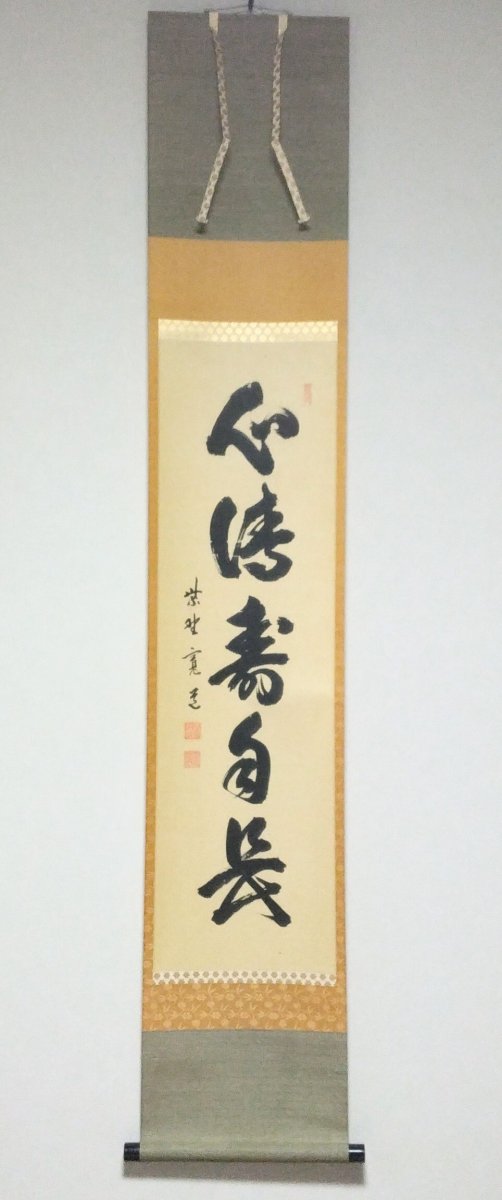 心清寿自長
紫野 寛道